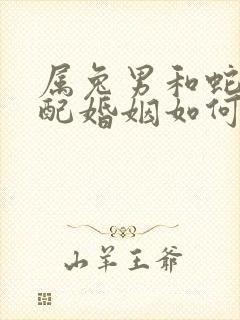 属兔男和蛇
配婚姻如何
山羊王爷